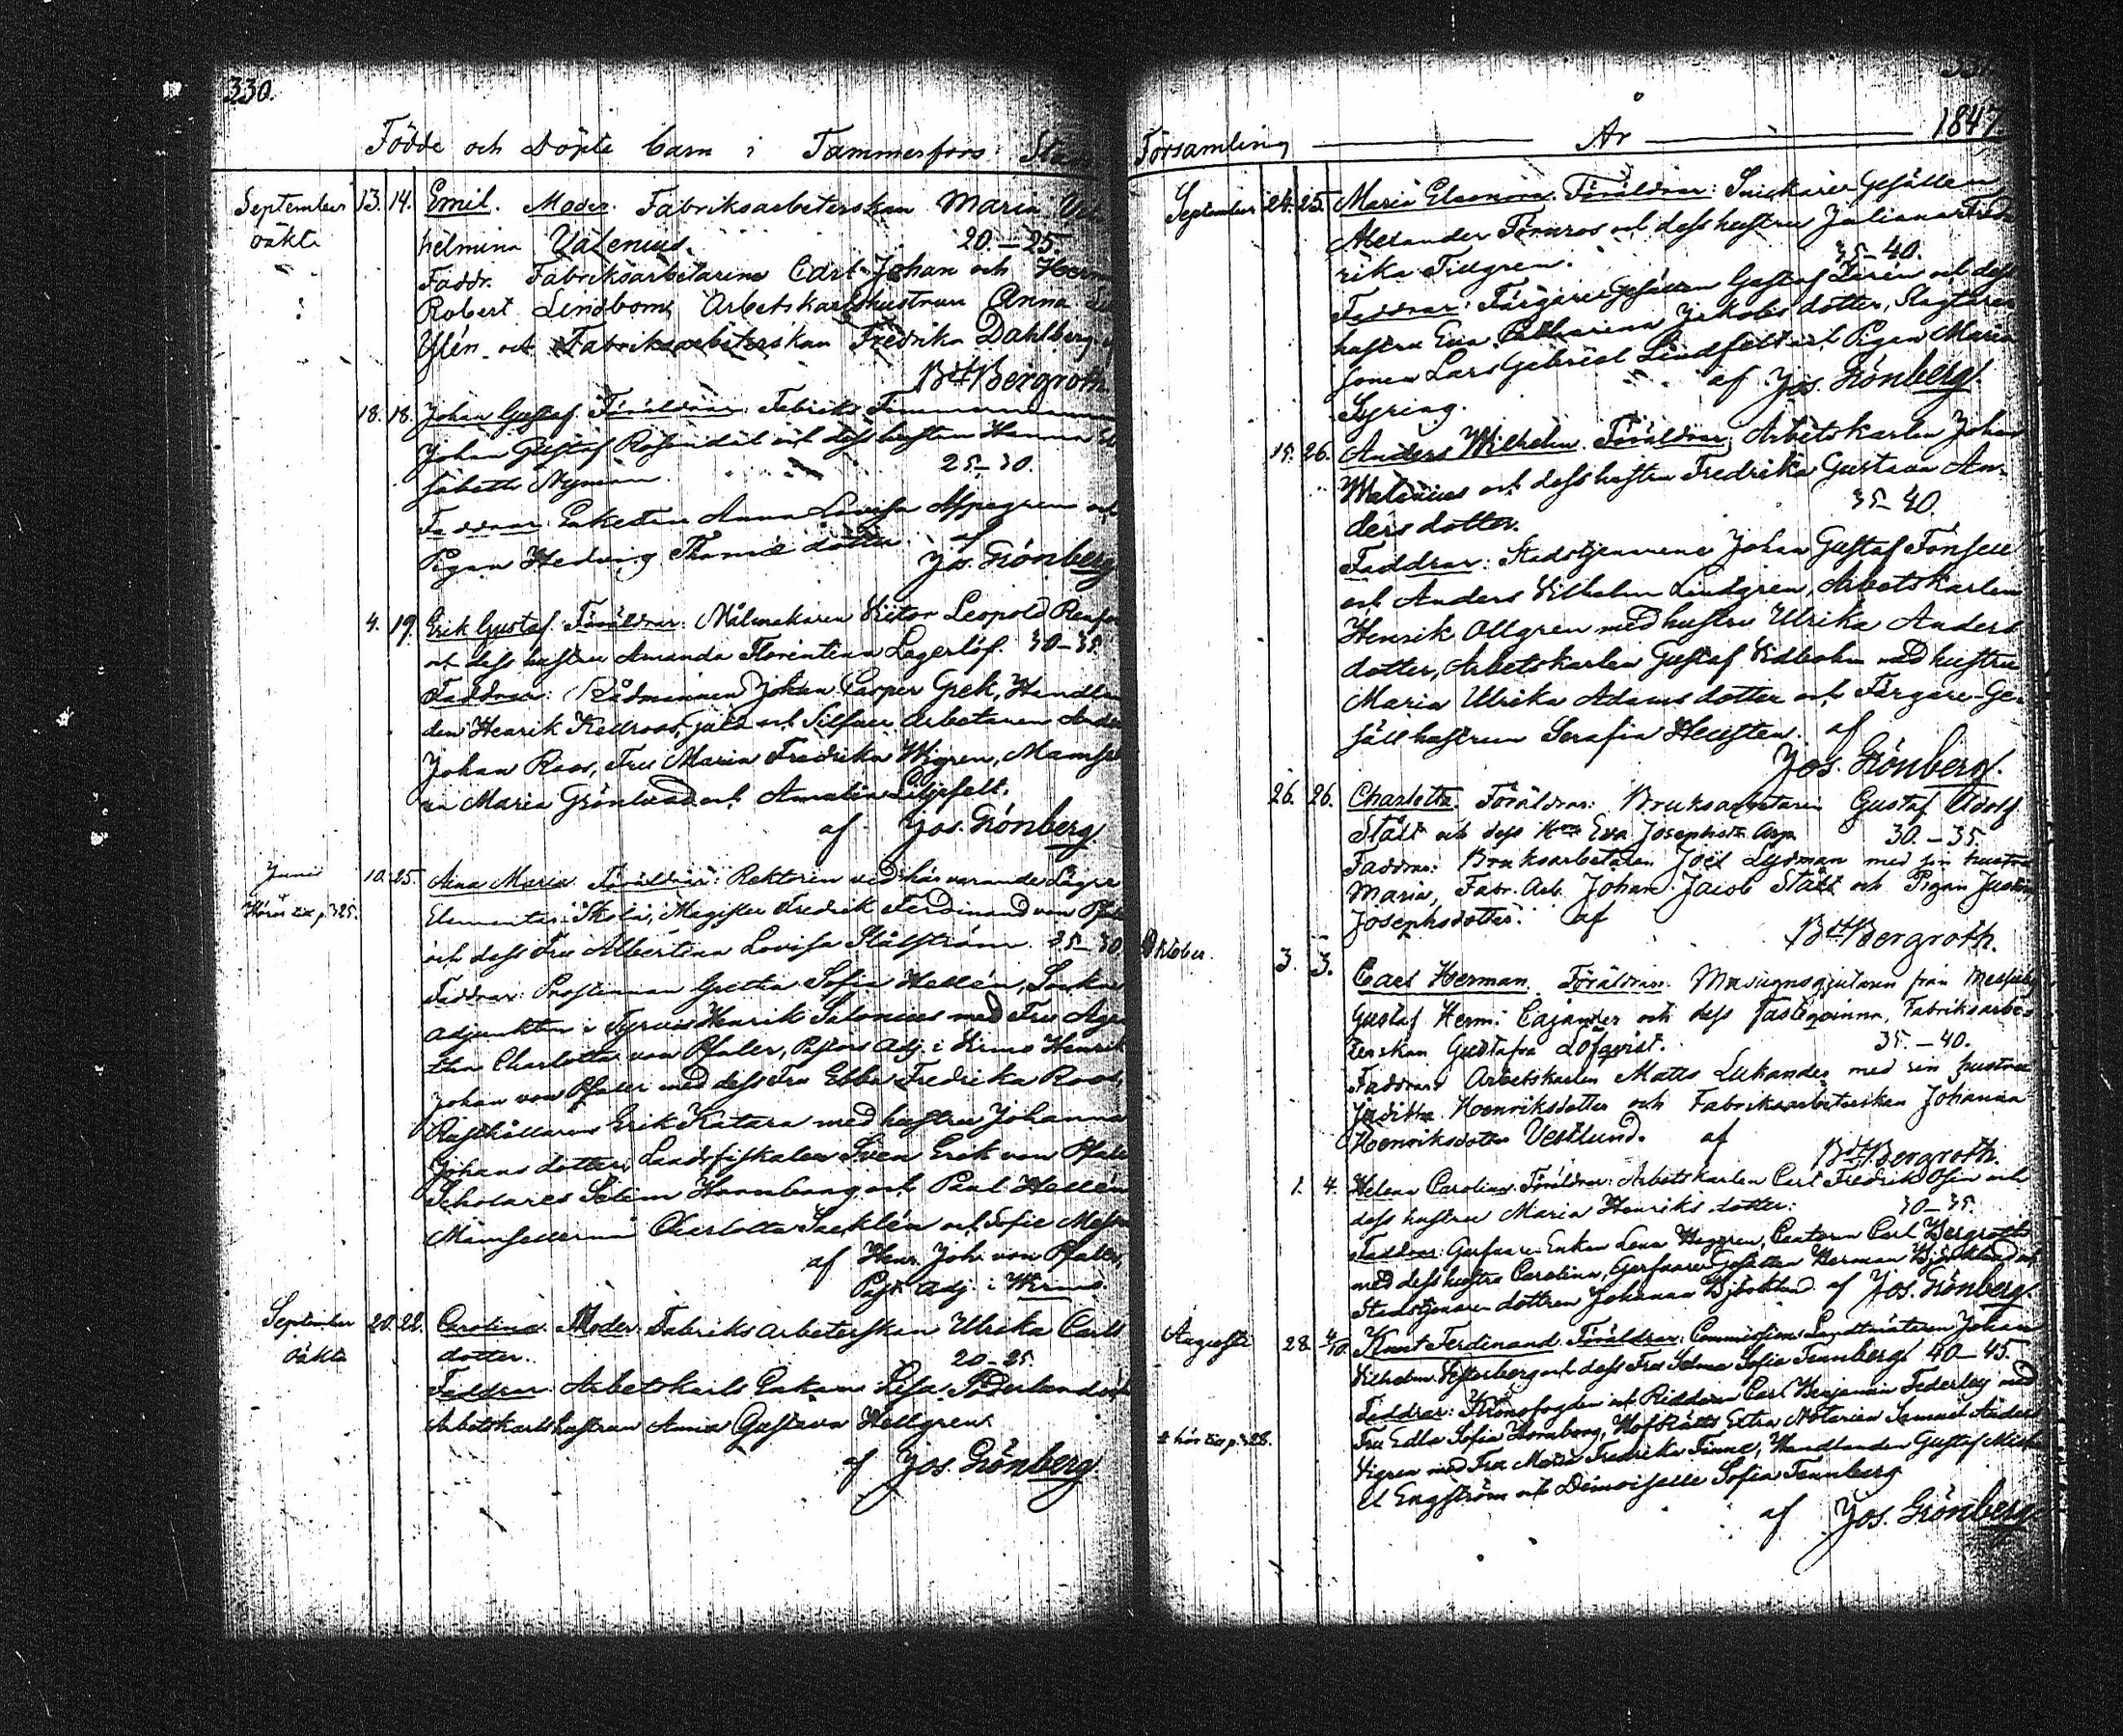 330.
Födde och Döpte barn i Tammerfors
September 13. 14. Emil. Moder Fabriksarbeterskan Maria
oäkta
helmina Valenius. 20.–25
Faddr. Fabriksarbetarine Carl Johan och Herm
Robert Lindbom, Arbetskarlshustrun Anna
Ylén och Fabriksarbeterskan Fredrika Dahlberg
Bergroth.
18. 18. Johan Gustaf. Föräldrar: Fabriks
Johan Gustaf Rosendal och dess hustru Hanna
sabeth Nyman 25–30.
Faddrar: Enkefru Anna Lovisa Aspegren och
Pigan Hedvig Thomæ dotter af
Jos. Grönberg
4. 19. Erik Gustaf. Föräldrar: Målmakaren Victor Leopold
och dess hustru Amanda Florentina Lagerlöf. 30–35.
Faddrar: Rådmannen Johan Casper Grek, Handlan
den Henrik Kellroos, guld och Silfver Arbetaren
Johan Roos, Fru Maria Fredrika Wigren, Mamsel
Maria Grönlund och Amalia Liljefelt.
af Jos. Grönberg
Junii 10. 25. Aina Maria. Föräldrar: Rektorn vid härvarande Lägre
p. 325.
Elementar Skola, Magister Fredrik Ferdinand von
och dess Fru Albertina Lovisa Stålström. 25–30
Faddrar: Prostinnan Gretha Sofia Hellén, Socken
adjunkten i Tyrvis Henrik Salonius med Fru Aga
tha Charlotta von Pfaler, Pastors Adj. i Virmo Henrik
Johan von Pfaler med dess Fru Ebba Fredrika Roos,
Rusthållaren Erik Katara med hustru Johanna
Johans dotter, Landsfiskalen Sven Erik von
Scholares Selim Hornborg och Paul Hellén
Charlotta och Sofie
af Henr. Joh. von Pfaler,
Past. Adj. i Wirmo.
September 20. 22. Carolina. Moder Fabriksarbeterskan Ulrika Carls
oäkta dotter. 20–25
Faddrar: Arbetskarls Enkan Lisa Söderlund och
Arbetskarlshustrun Anna Gustava Hellgren.
af Jos. Grönberg
331.
Församling År 1847.
September 24. 25. Maria Eleonora. Föräldrar: Snickare Gesällen
Alexander Törnroos och dess hustru Juliana Fred
rika Tillgren. 35–40.
Faddrar: Färgare Gesällen Gustaf och dess
hustru Eva Catharina Jakobs dotter, Slagtare
sonen Lars Gabriel Lindfelt och Pigan Maria
Syring. af Jos. Grönberg.
15. 26. Anders Wilhelm. Föräldrar: Arbetskarlen Johan
Malenius och dess hustru Fredrika Gustava An-
ders dotter. 35–40.
Faddrar: Stadstjenarene Johan Gustaf Fonsell
och Anders Vilhelm Lindgren, Arbetskarlen
Henrik Ollgren med hustru Ulrika Anders
dotter, Arbetskarlen Gustaf Vidbohm med hustru
Maria Ulrika Adams dotter och Färgare-Ge-
säll hustrun Serafia af
Jos. Grönberg.
26. 26. Charlotta. Föräldrar: Bruksarbetarn Gustaf Adolf
Stålt och dess Eva Josephina Asp 30.–35.
Faddrar: Bruksarbetaren Joël Lydman med sin hustru
Maria, Fabr. Arb. Johan Jacob Stålt och Pigan
Josephsdotter. af
Bergroth.
Oktober. 3. 3. Carl Herman. Föräldrar: Masugnsgjutaren från
Gustaf Herm: Cajander och dess Fästeqvinna, Fabriksarbe-
terskan Gustafva Löfqvist. 35.–40.
Faddrar: Arbetskarlen Matts Lukander med sin hustru
Juditha Henriksdotter och Fabriksarbeterskan Johanna
Henriksdotter Vestlund. af
Bergroth.
1. 4. Helena Carolina. Föräldrar: Arbetskarlen Carl Fredrik och
dess hustru Maria Henriks dotter: 30–35.
Faddrar: Garfvare Enkan Lena Heggren, Cantorn Carl Bergroth
med dess hustru Carolina, Garfvare Gesällen Herman Björklund och
Stadstjenare dottren Johanna Björklund af Jos. Grönberg.
Augusti 28. 4/10. Knut Ferdinand. Föräldrar: Commissions Landtmätaren Johan
Vilhelm och dess Fru Selma Sofia Tennberg 40–45.
Faddrar: Kronofogden och Riddaren Carl Benjamin Federley med
hör till p. 328.
Fru Edla Sofia Hornborg, HofRätts Extra Notarien Samuel
Vigren med Fru Maria Fredrika Finne, Handlanden Gustaf Mich
el Engström och Demoiselle Sofia Tennberg
af Jos. Grönberg